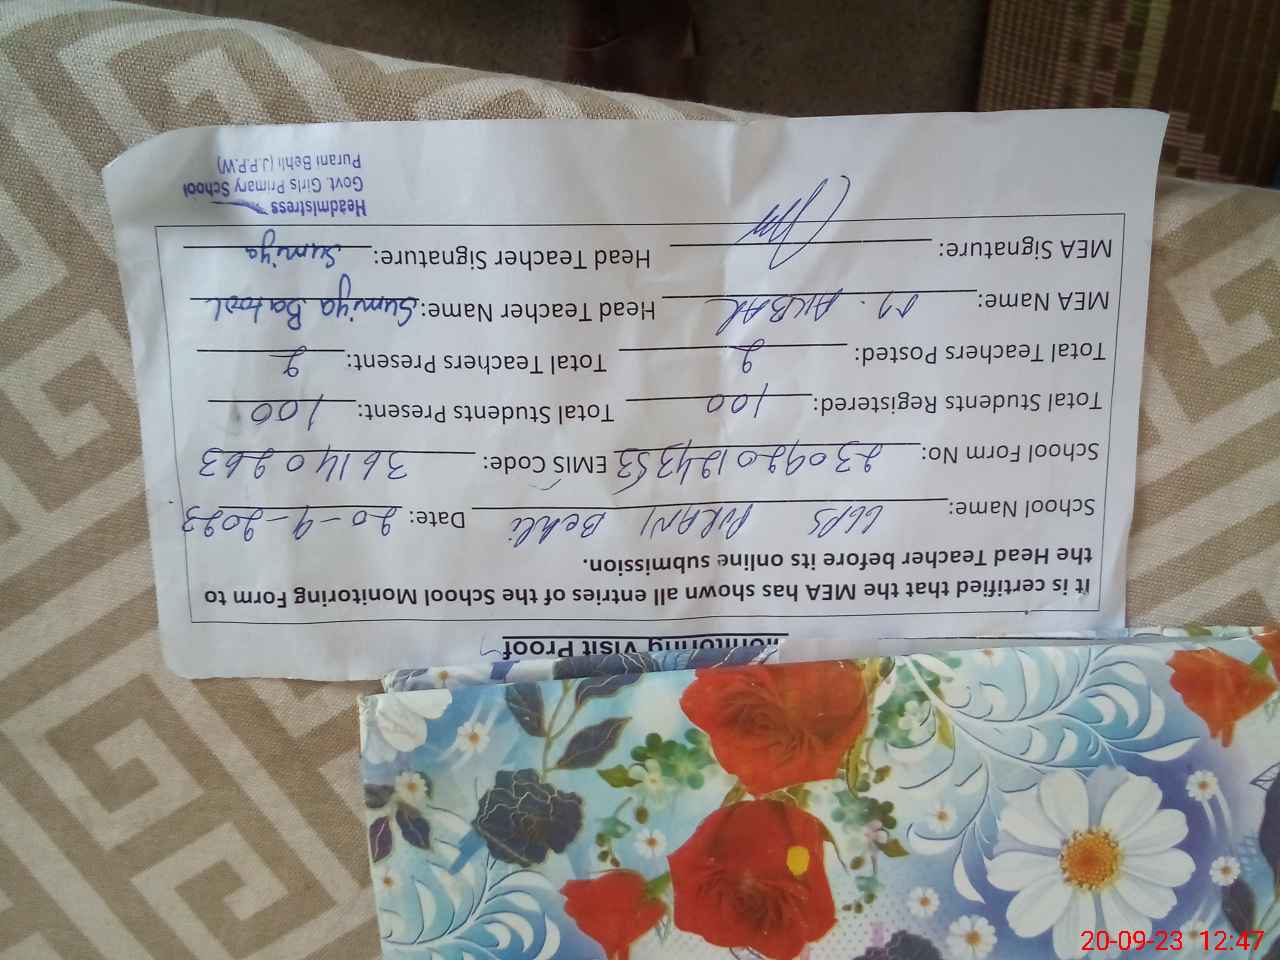 Monitoring Visit Proof
It is certified that the MEA has shown all entries of the School Monitoring Form to
the Head Teacher before its online submission.
School Name: GGPS PURANI Behli Date: 20-9-2023
School Form No: 230920124353 EMIS Code: 36140263
Total Students Registered: 100 Total Students Present: 100
Total Teachers Posted: 2 Total Teachers Present: 2
MEA Name: M. AKBAR Head Teacher Name: Sumiya Batool
MEA Signature: Head Teacher Signature: Sumiya
Headmistress
Govt. Girls Primary School
Purani Behli (J.P.P.W)
20-09-23 12:47